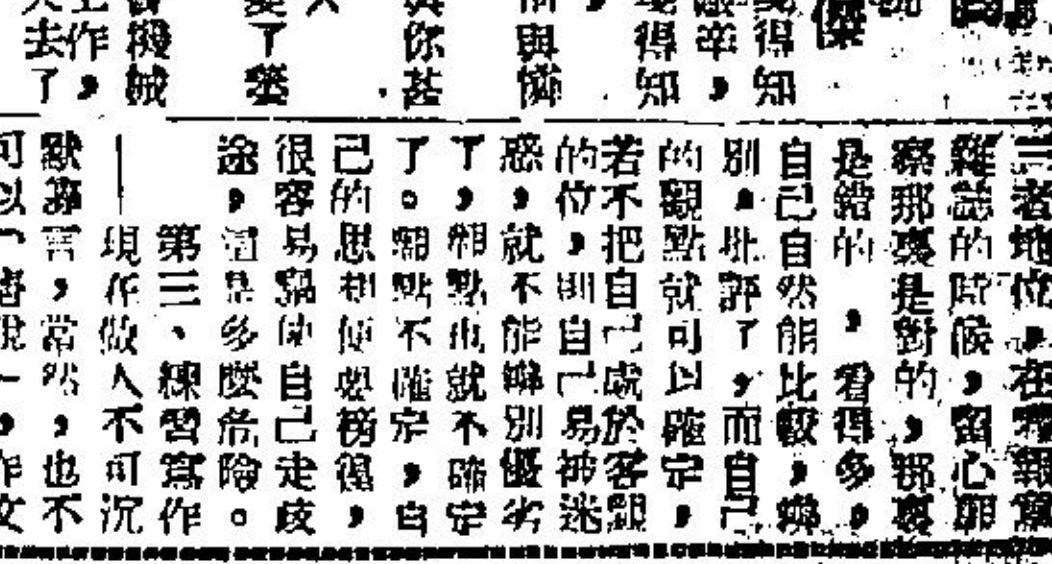 得知
得知
與憐
你甚
了藝
機械
工作，
去了
三者地位，在
雜誌的時候，留心
察那裏是對的，那裏
是錯的，看得多，
自己自然能比較，辦
別，批評了，而自己
的觀點就可以確定，
若不把自己處於客觀
的位，則自己易被迷
惑，就不能辦別優劣
了，觀點也就不確定
了。觀點不確定，自
己的思想便要徬徨，
很容易驅使自己走歧
途，這是多麼危險。
第三、練習寫作
—現在做人不可沉
默寡言，當然，也不
可以「 說 ，作文